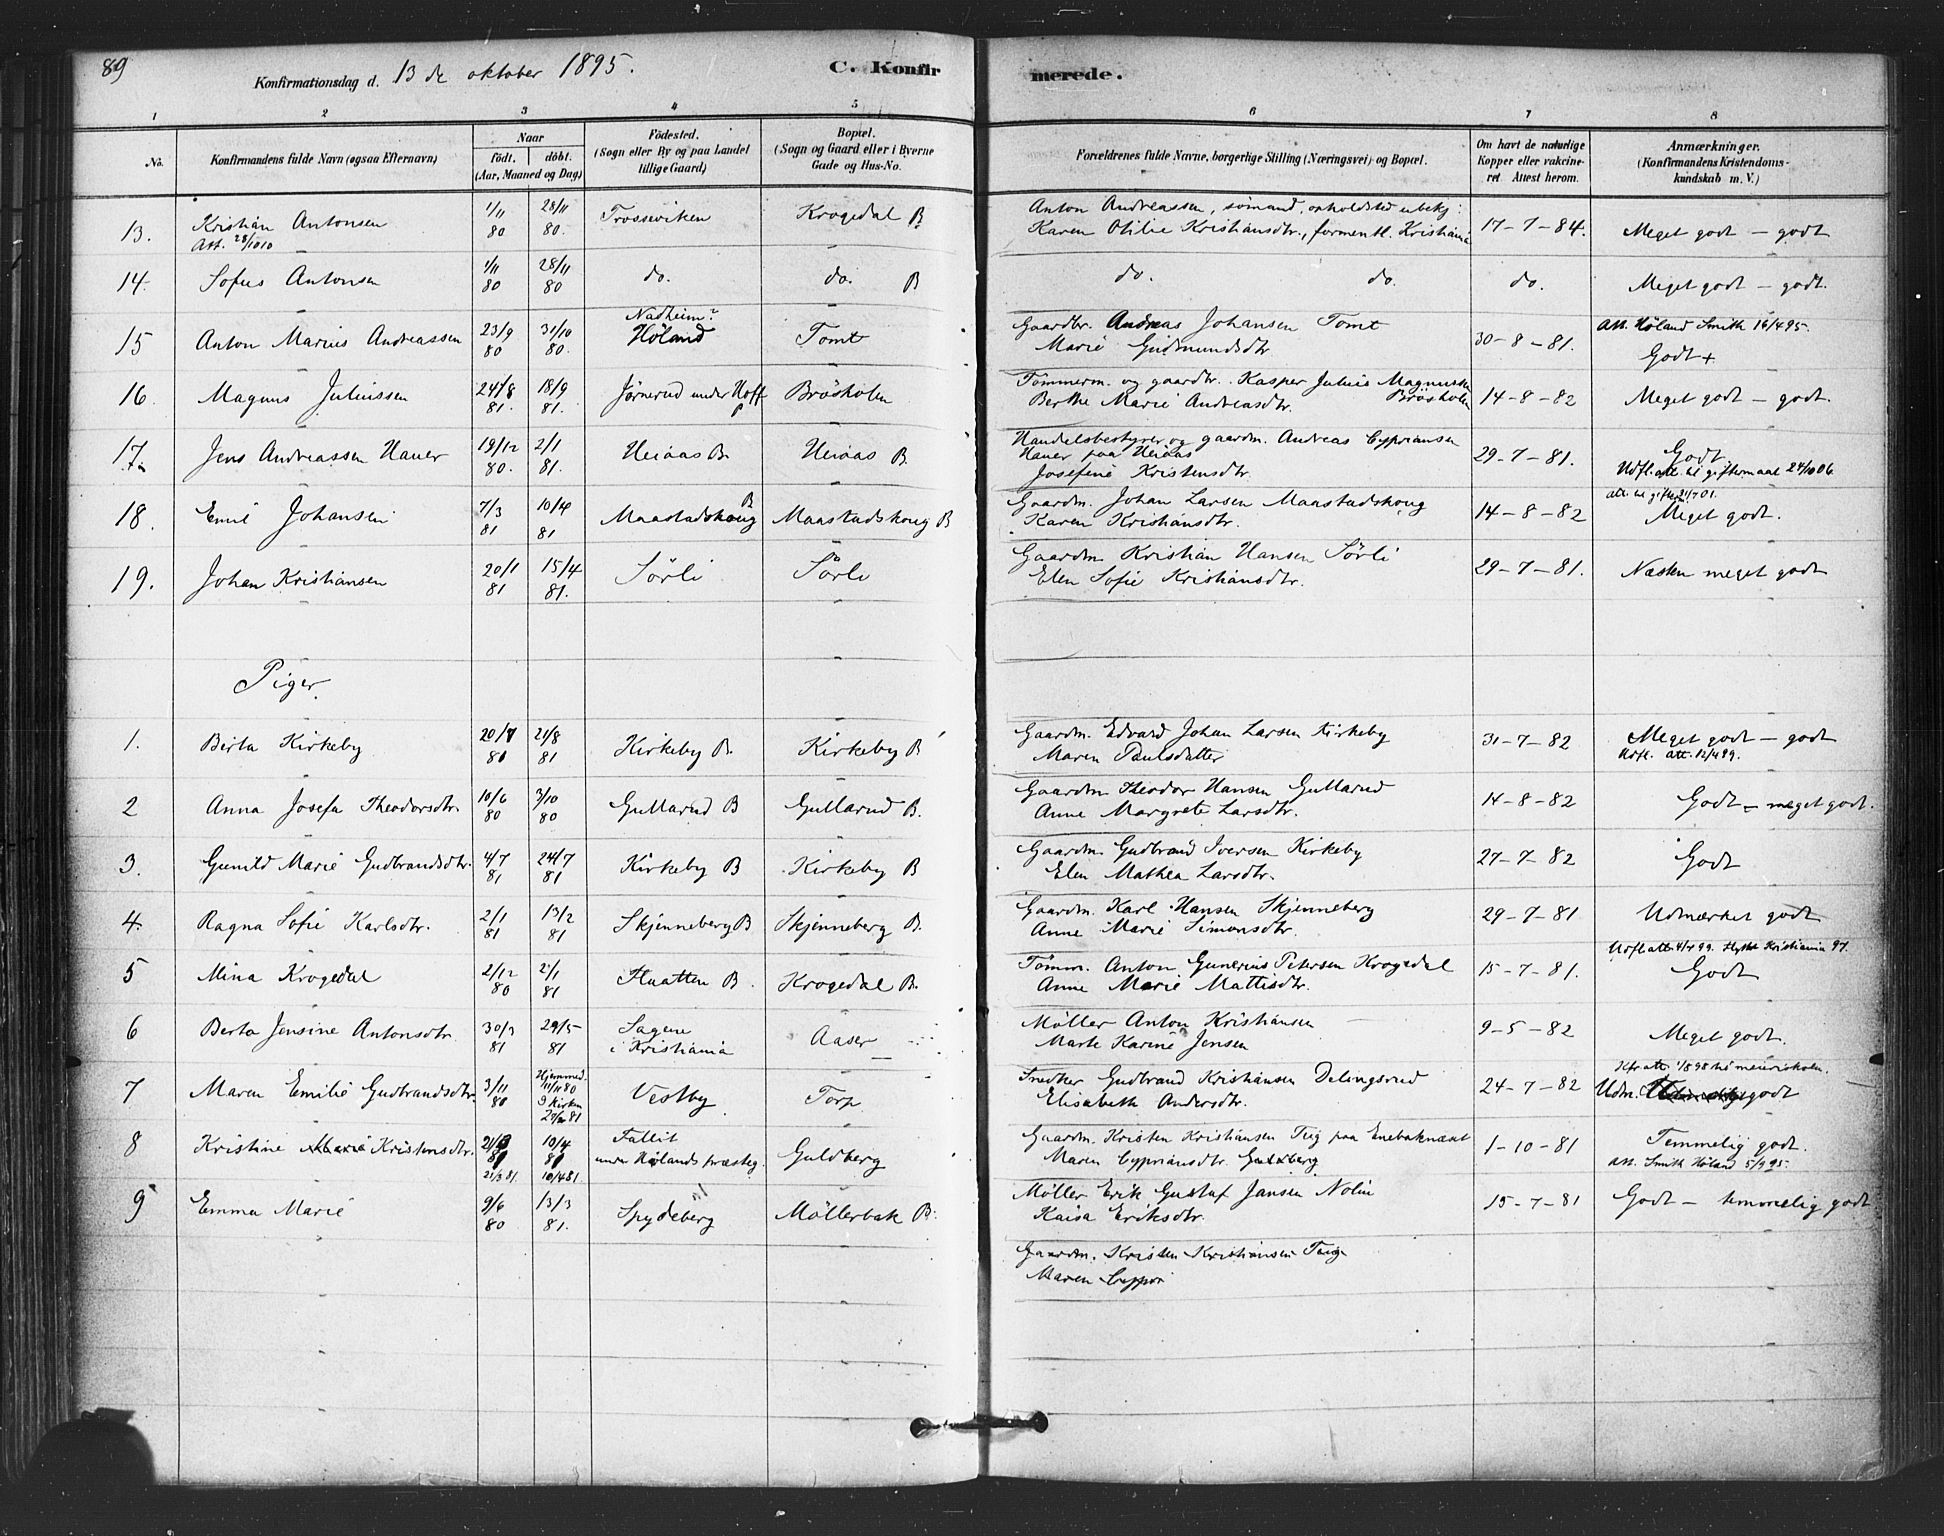 89
Konfirmationsdag d. 13de oktober 1895.
C. Konfirmerede.
1 2 3 4 5 6 7 8
No. Konfirmandens fulde Navn (ogsaa Efternavn) Naar født. døbt. (Aar, Maaned og Dag) Fødested. (Sogn eller By og paa Landet tillige Gaard) Bopæl. (Sogn og Gaard eller i Byerne Gade og Hus-No. Forældrenes fulde Navne, borgerlige Stilling (Næringsvei) og Bopæl. Om havt de naturlige Kopper eller vakcineret Attest herom. Anmærkninger. (Konfirmandens Kristendomskundskab m. V.)
13. Kristian Antonsen 1/11 80 28/11 80. Trosseviken Krogedal B Anton Andreassen, sömand, opholdsted ubekj:
Att. 28/10 10 Karen Otilie Kristiansdtr., formentl. Kristiania 17-7-84. Meget godt – godt
14. Sofus Antonsen 1/11 80 28/11 80 do. do. B do. do. do. Meget godt – godt.
15 Anton Marius Andreassen 23/9 80 31/10 80. Nadheim? Höland Tomt Gaardbr. Andreas Johansen Tomt
Marie Gudmundsdtr 30-8-81. Att. Höland Smith 16/4 95.
Godt +
16. Magnus Juliussen 24/8 81. 18/9 81. Jörnerud under Hoff Bröskolen Tömmerm. og gaardbr. Kasper Julius Magnussen Bröskolen
Berthe Marie Andreasdtr. 14-8-82 Meget godt – godt.
17. Jens Andreassen Hauer 19/12 80. 2/1 81. Heiaas B. Heiaas B. Handelsbestyrer og gaardm. Andreas Cypriansen
Hauer paa Heiaas
Josefine Kristensdtr. 29-7-81. Godt
Udfl. att. til giftermaal 24/10 06
18. Emil Johansen 7/3 81 10/4 81 Maastadskoug B Maastadskoug B Gaardm. Johan Larsen Maastadskoug
Karen Kristiansdtr. 14-8-82 Meget godt.
19. Johan Kristiansen 20/1 81 15/4 81. Sörli Sörli Gaardm Kristian Hansen Sörli
Elen Sofie Kristiansdtr. 29-7-81. Næsten meget godt
Piger.
1. Berta Kirkeby 20/7 81 21/8 81 Kirkeby B. Kirkeby B Gaardm. Edvard Johan Larsen Kirkeby
Maren Paulsdatter 31-7-82 Meget godt – godt
Udfl. att. 12/4 99.
2 Anna Josefa Theodorsdtr. 10/6 80 3/10 80 Gullarud B Gullarud B. Gaardm Theodor Hansen Gullarud
Anne Margrete Larsdtr. 14-8-82 Godt – meget godt.
3. Gunild Marie Gudbrandsdtr. 4/7 81 24/7 81 Kirkeby B Kirkeby B Gaardm. Gudbrand Iversen Kirkeby
Elen Mathea Larsdtr. 27-7-82 Godt
4. Ragna Sofie Karlsdtr. 2/1 81 13/2 81 Skjenneberg B Skjenneberg B. Gaardm. Karl Hansen Skjenneberg
Anne Marie Simonsdtr. 29-7-81 Udmærket godt
5 Mina Krogedal 2/12 80 2/1 81 B. Krogedal B. Tömm. Anton Gunerius Petersen Krogedal
Anne Marie Mattisdtr. 15-7-81. Udfl att 4/4 99. flyttet Kristiania 97.
Godt
6 Berta Jensine Antonsdtr 30/3 81 29/5 81 Sagene i Kristiania Aaser Möller Anton Kristiansen
Marte Karine Jensen 9-5-82 Meget godt.
7 Maren Emilie Gudbrandsdtr. 3/11 80 Hjemmed. 11/11 80 I kirken 81 Vestby Torp Snedker Gudbrand Kristiansen Delingsrud
Elisabeth Andersdtr. 24-7-82 Udm. godt
8 Kristine Marie Kristensdtr. 21/3 81 10/4 81 21/3 81. 10/4 81 Fallit under Hölands præsteg. Guldberg Gaardm. Kristen Kristiansen Teig paa Enebaknæset
Maren Cypriansdtr. Guldberg 1-10-81 Temmelig godt.
Att. Smith Höland 5/9 95.
9 Emma Marie 9/6 80 13/3 81. Spydeberg Möllerbak B. Möller Erik Gustaf Jansen Nolin
Kaisa Eriksdtr. 15-7-81 Godt – temmelig godt
Gaardm. Kristen Kristiansen Teig
Maren